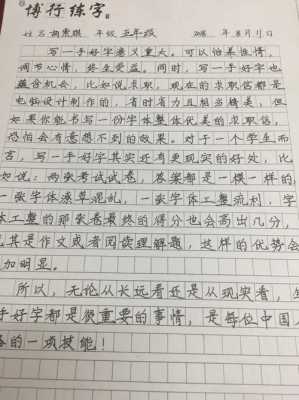 博行练字
姓名 年级 五年级 年 8 月 11 日
写一手好字意义重大。可以怡养性情,
调节心情,终生受益。同时,写一手好字也
蕴含机会,比如说求职,现在的求职信都是
电脑设计制作的,省时省力且相当精美,但
如果你能书写一份字体整体优美的求职信,
恐怕会有意想不到的效果。对于一个学生而
言,写一手好字其实还有更现实的好处,比
如说:两张考试试卷,答案都是一模一样的
一张字体潦草混乱,一张字体工整流利,字
体工整的那张卷最终的得分也会高出几分,
尤其是作文或者阅读理解题,这样的优势会
加明显。
所以,无论从长远看还是从现实看,
手好字都是严重要的事情,是每位中国
备的一项技能!